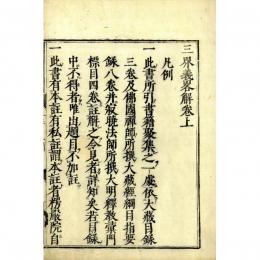 三界義畧解卷上
凡例
一此書所引書籍聚集之一處依大藏目錄
三卷及佛國禪師所撰大藏經綱目指要
錄八卷并寂曉法師所撰大明釋教彙門
標目四卷註解之令見者詳知矣若目錄
中不得者唯出題目不加註
一此書有本註有私註謂本註者楞嚴院自